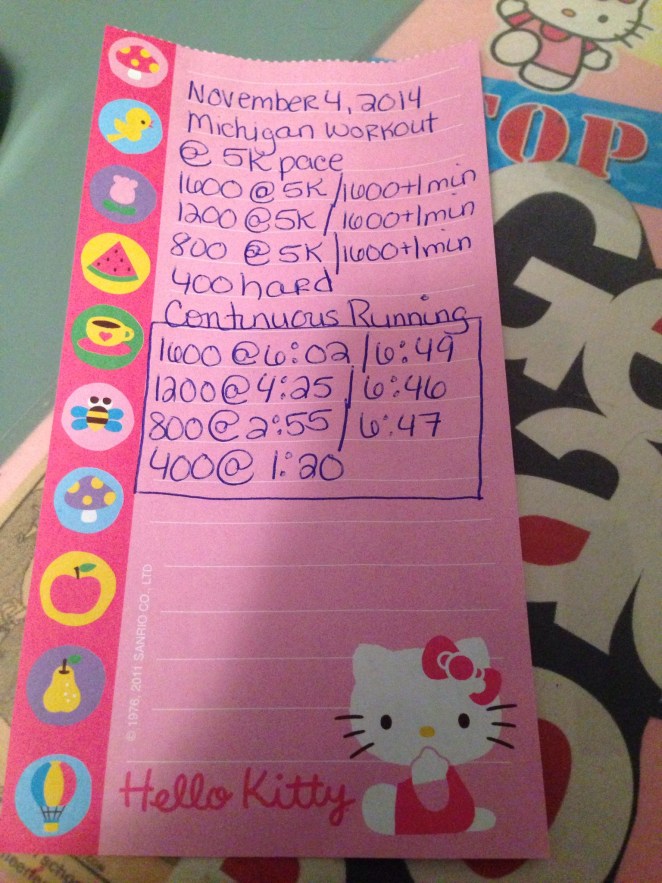 November 4, 2014
Michigan Workout
@ 5K pace
1600 @ 5K /1600+1min
1200 @ 5K /1600+1min
800 @ 5K /1600+1min
400 hard
Continuous Running
1600 @ 6:02 / 6:49
1200 @ 4:25 / 6:46
800 @ 2:55 / 6:47
400 @ 1:20
© 1976, 2011 SANRIO CO., LTD
Hello Kitty
TOP